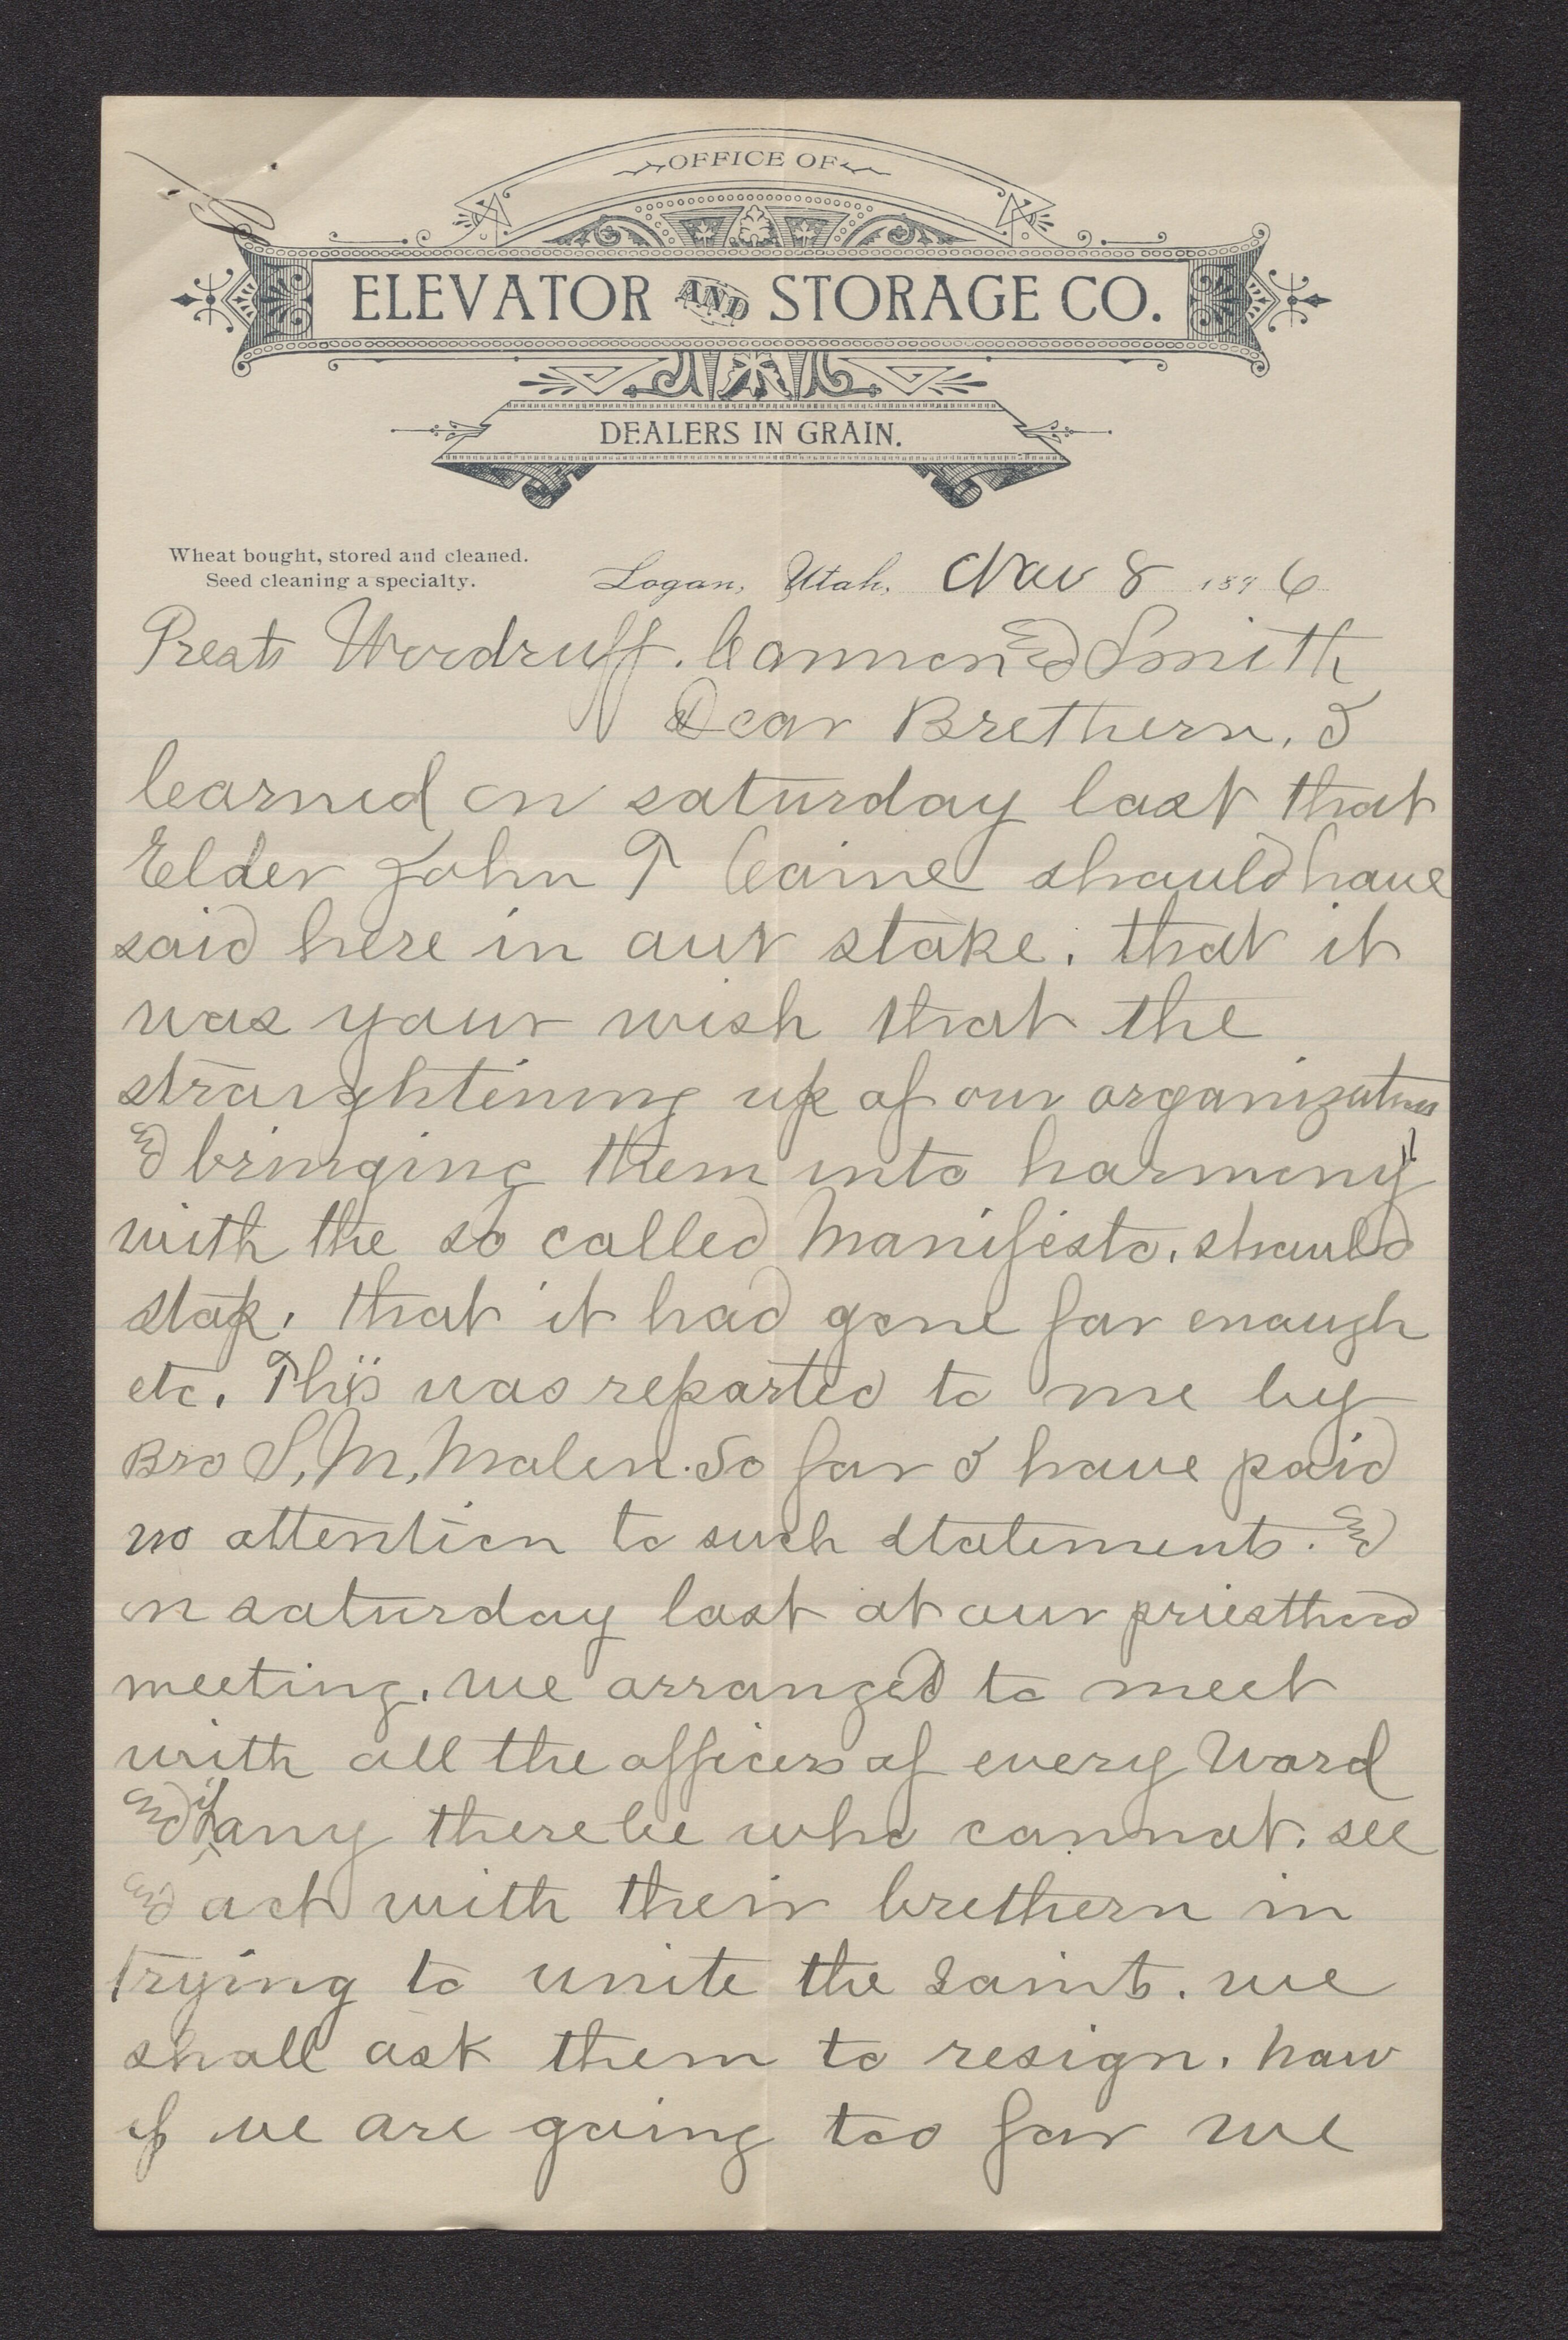 OFFICE OF
ELEVATOR AND STORAGE CO.
DEALERS IN GRAIN.
Wheat bought, stored and cleaned.
Seed cleaning a specialty.
Logan, Utah, Nov 8 1896
Prests Woodruff. Cannon and Smith
Dear Brethern, I
learned on saturday last that
Elder John T Caine should have
said here in our stake. that it
was your wish that the
straightening up of our organizations
and bringing them into harmony
with the so called Manifesto. should
stop. that it had gone far enough
etc. This was reported to me by
Bro S. M. Molen. So far I have paid
no attention to such statements. and
on saturday last at our priesthood
meeting. we arranged to meet
with all the officers of every Ward
and if any there be who cannot. see
and act with their brethern in
trying to unite the saints. we
shall ask them to resign. now
if we are going too far we